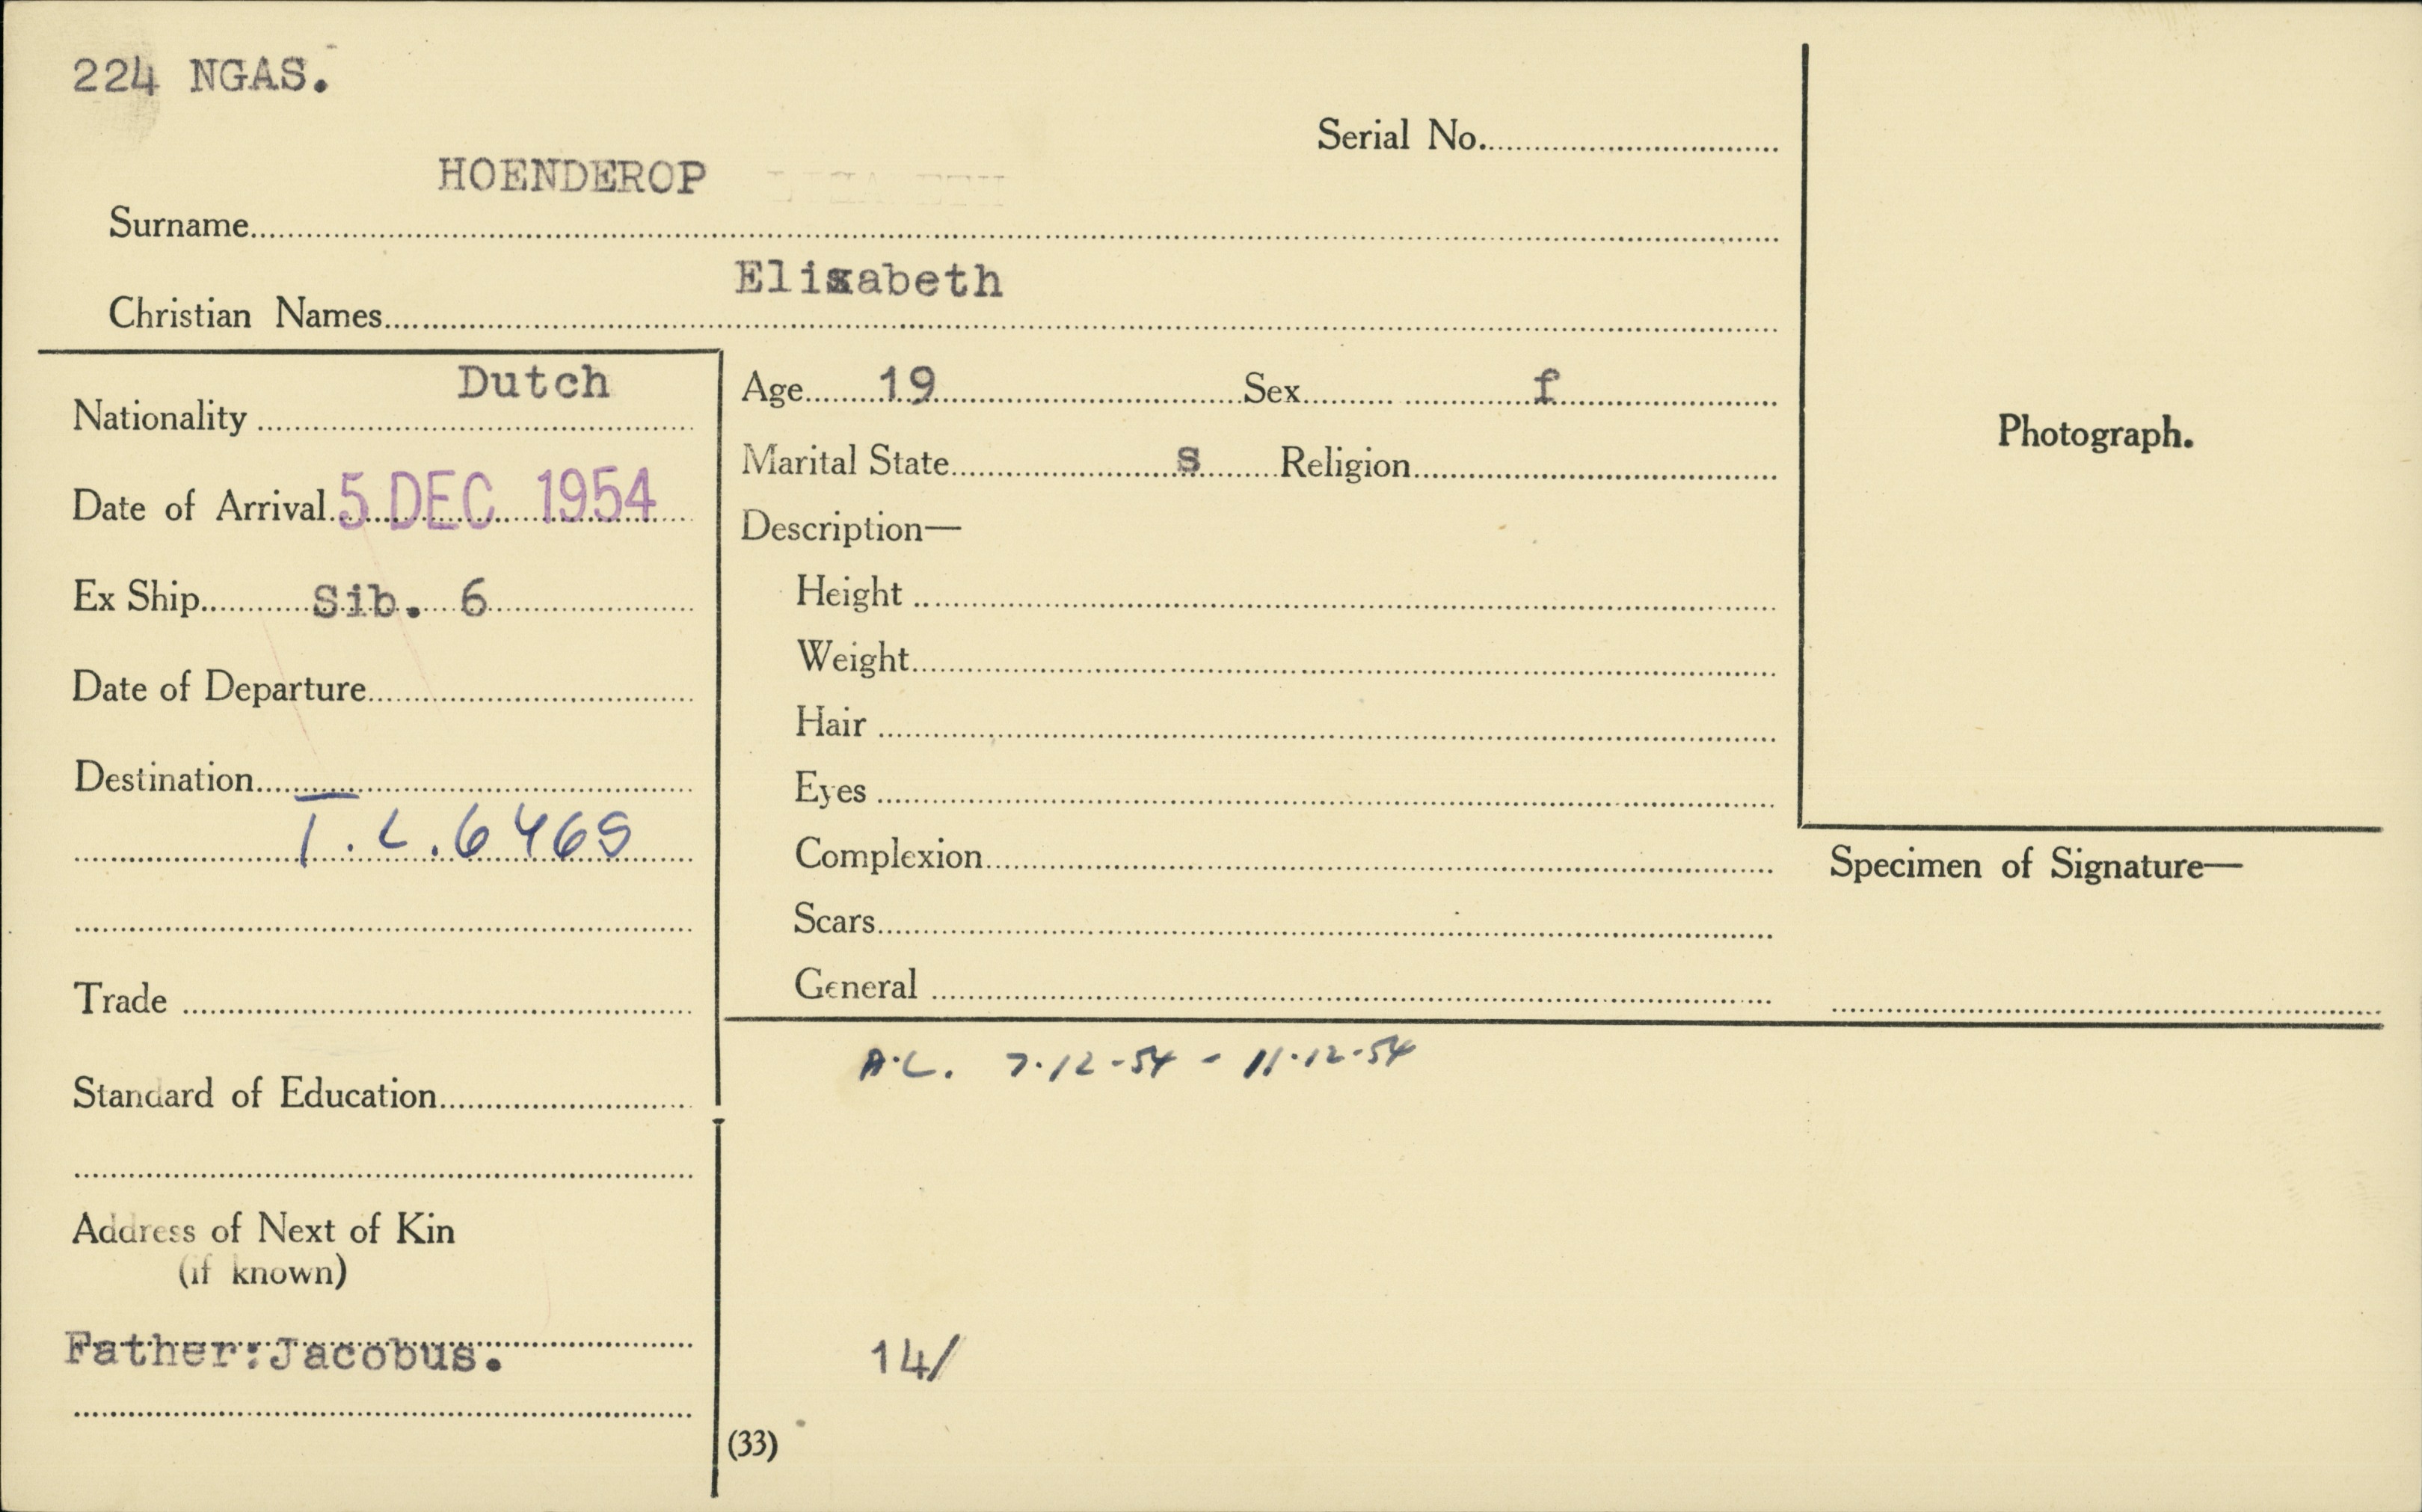 224 NGAS.
Serial No.
HOENDEROP
Surname
Elisabeth
Christian Names
Dutch
Nationality
Age 19 Sex f
Marital State s Religion
Photograph.
Date of Arrival 5 DEC 1954
Description—
Ex Ship Sib. 6
Height
Weight
Date of Departure
Hair
Destination
Eyes
T.L.6465
Complexion
Specimen of Signature—
Scars
Trade
General
A.L. 7.12-54 - 11.12-54
Standard of Education
Address of Next of Kin
(if known)
Father:Jacobus.
14/
(33)